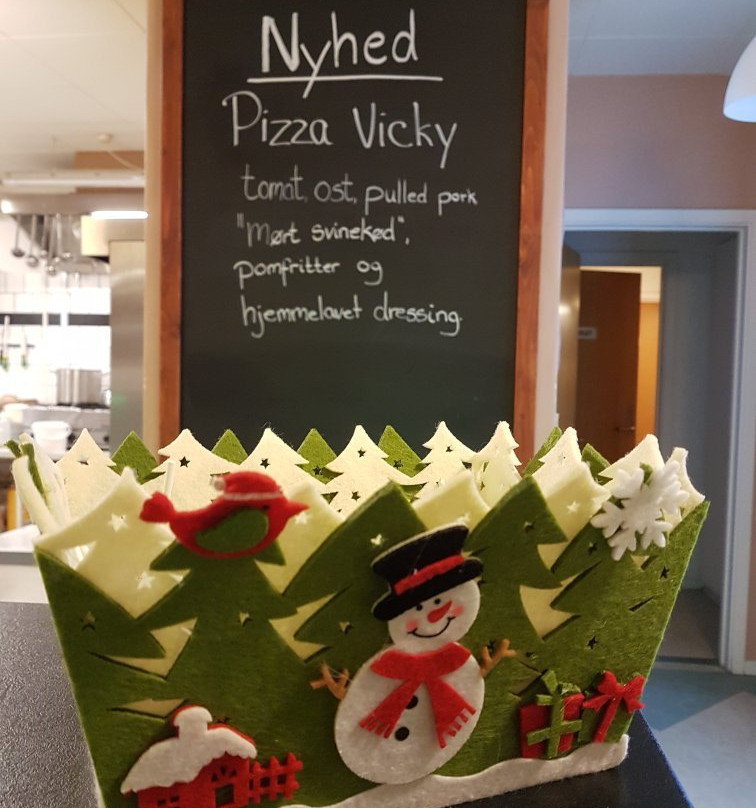 Nyhed
Pizza Vicky
tomat, ost, pulled pork
"Mørt svinekød",
pomfritter og
hjemmelavet dressing.